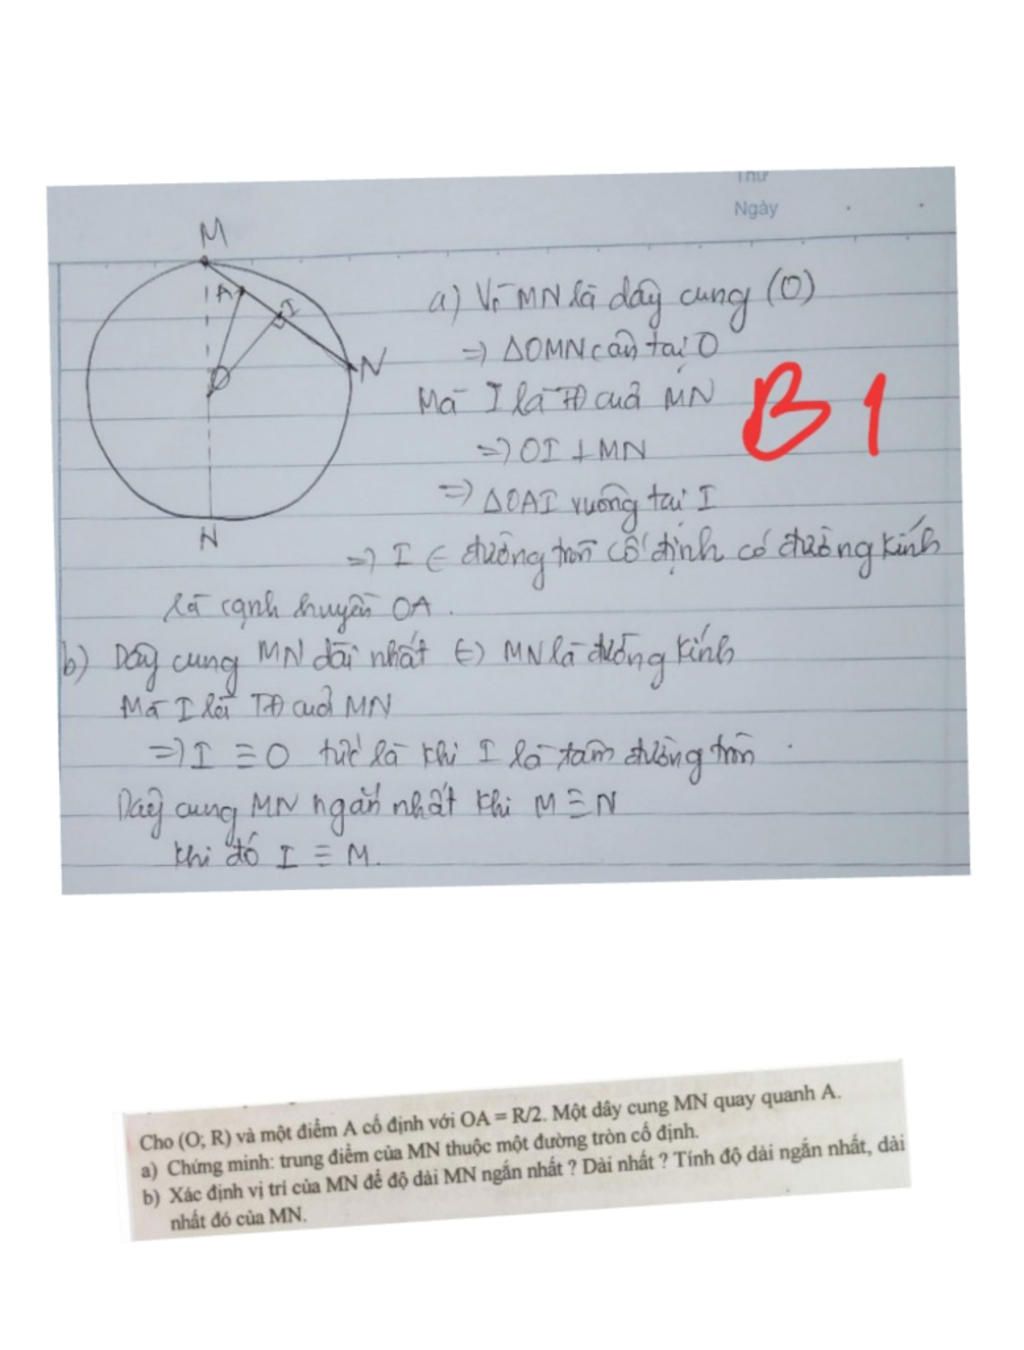 Thứ
Ngày
M
A
I
O
N
N
a) Vì MN là dây cung (O)
=> ΔOMN cân tại O
Mà I là TĐ của MN
=> OI ⊥ MN
=> ΔOAI vuông tại I
=> I ∈ đường tròn cố định có đường kính
là cạnh huyền OA.
B1
b) Dây cung MN dài nhất <=> MN là đường kính
Mà I là TĐ của MN
=> I ≡ O tức là khi I là tâm đường tròn.
Dây cung MN ngắn nhất khi M ≡ N
khi đó I ≡ M.
Cho (O; R) và một điểm A cố định với OA = R/2. Một dây cung MN quay quanh A.
a) Chứng minh: trung điểm của MN thuộc một đường tròn cố định.
b) Xác định vị trí của MN để độ dài MN ngắn nhất ? Dài nhất ? Tính độ dài ngắn nhất, dài
nhất đó của MN.